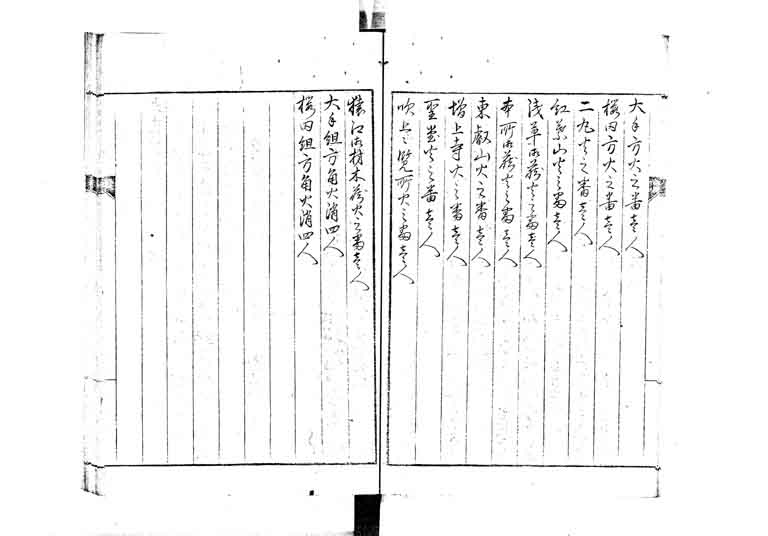 大手方火之番壱人
桜田方火之番壱人
二丸火之番壱人
紅葉山火之番壱人
浅草御蔵火之番壱人
本所御蔵火之番壱人
東叡山火之番壱人
増上寺火之番壱人
聖堂火之番壱人
吹上上覧所火之番壱人
猿江御材木蔵火之番壱人
大手組方角火消四人
桜田組方角火消四人